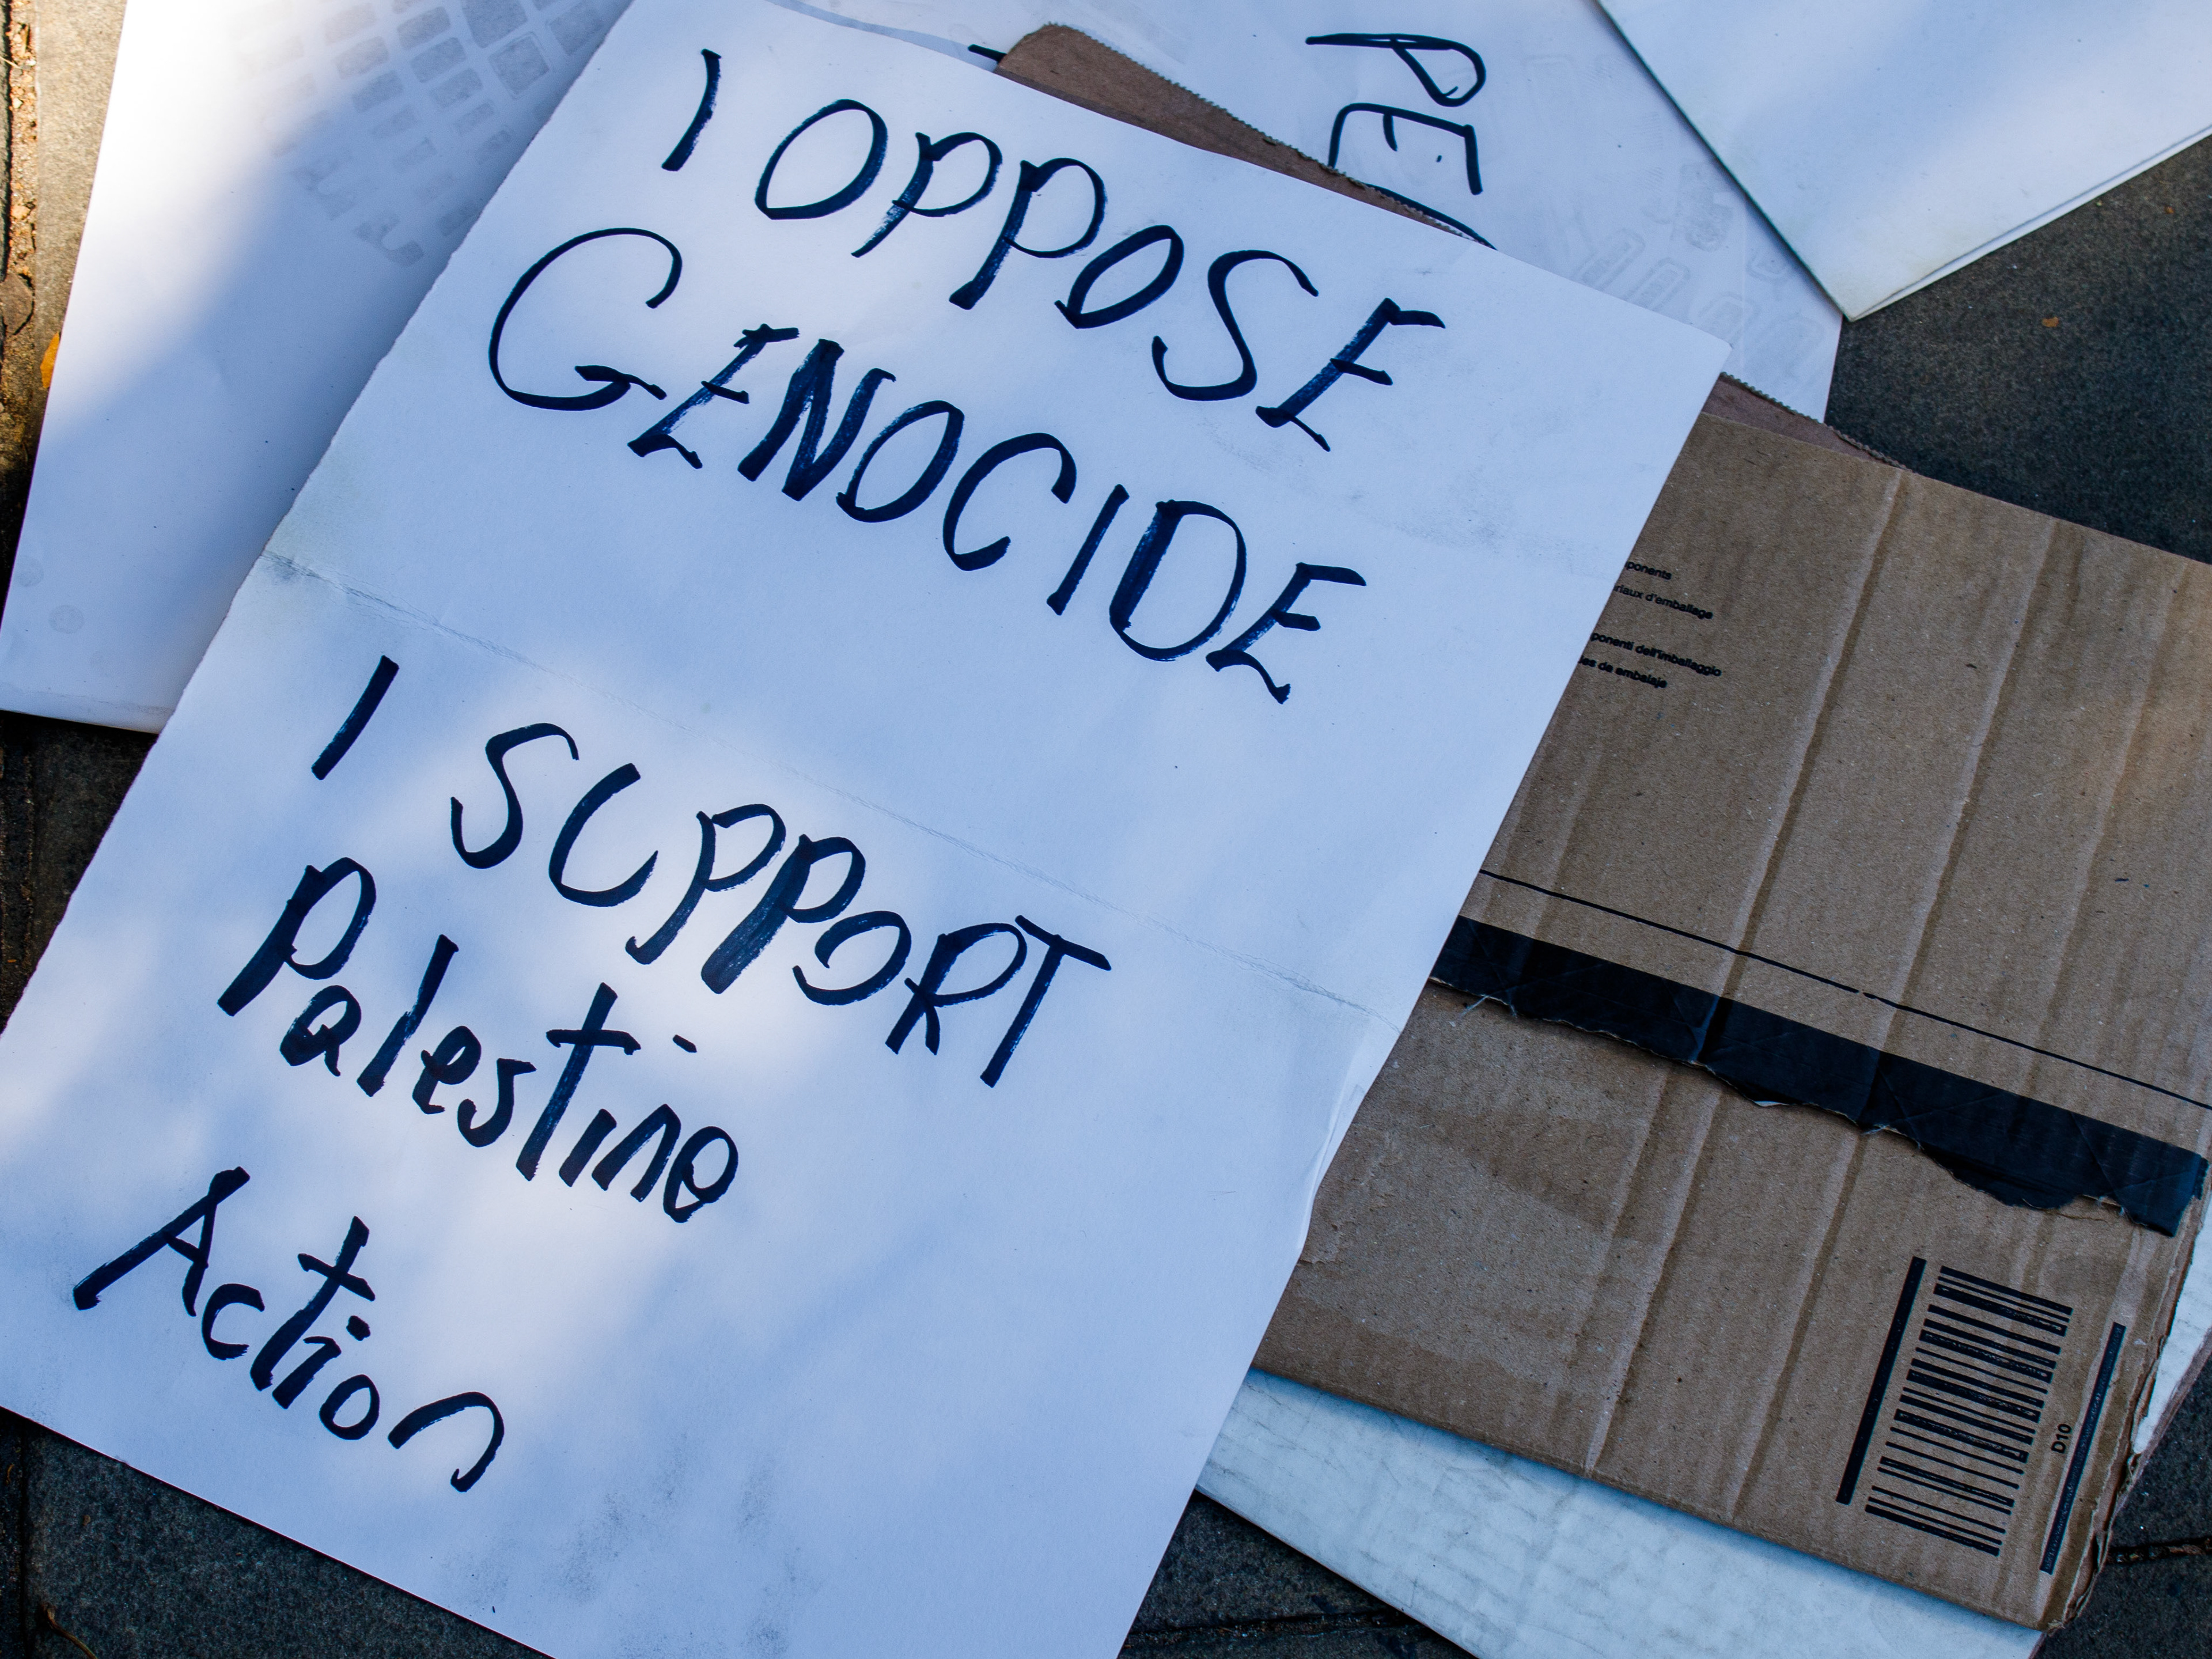 I OPPOSE
GENOCIDE
I SUPPORT
Palestine
Action
PE
ponents
riaux d'emballage
ponenti dell'imballaggio
es de embalaje
D10